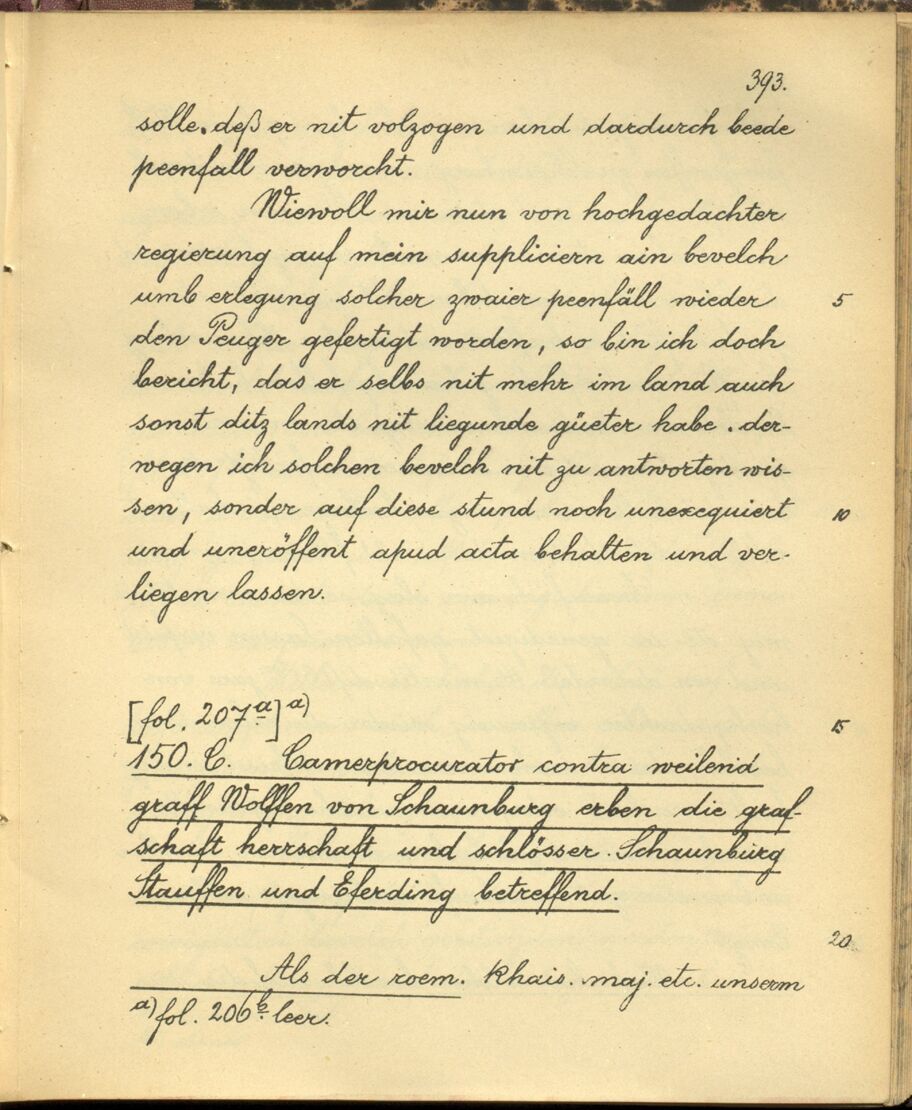 393.
solle. deß er nit volzogen und dardurch beede
peenfall verworcht.
Wiewoll mir nun von hochgedachter
regierung auf mein suppliciern ain bevelch
umb erlegung solcher zwaier peenfäll wieder 5
den Peuger gefertigt worden, so bin ich doch
bericht, das er selbs nit mehr im land auch
sonst ditz lands nit liegunde güeter habe. der-
wegen ich solchen bevelch nit zu antworten wis-
sen, sonder auf diese stund noch unexequiert 10
und uneröffent apud acta behalten und ver-
liegen lassen.
[fol. 207a]a) 15
150. C. Camerprocurator contra weilend
graff Wolffen von Schaunburg erben die graf-
schaft herrschaft und schlösser Schaunburg
Stauffen und Eferding betreffend.
20
Als der roem. Khais. maj. etc. unserm
a) fol. 206b leer.